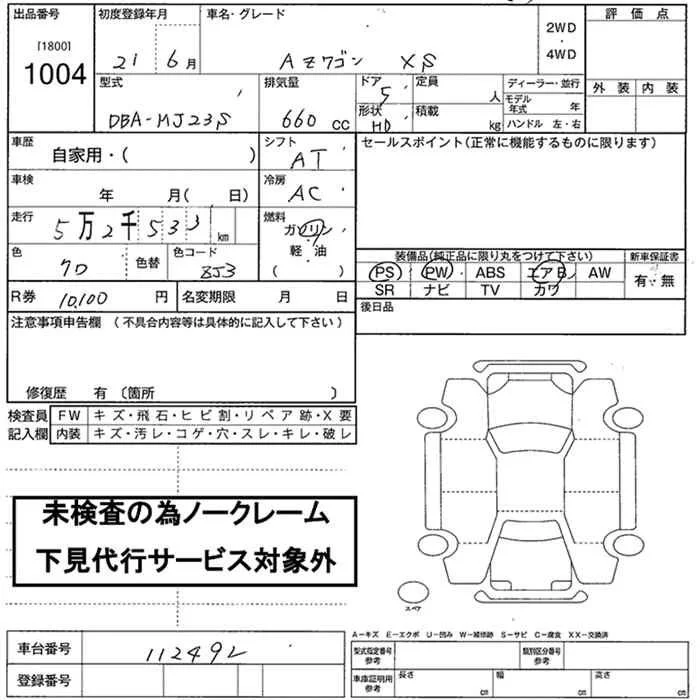 出品番号
[1800]
1004
初度登録年月
21 6月
車名・グレード
AZワゴン XS
2WD
・
4WD
評価点
外装 内装
型式
DBA-MJ23S
排気量
660 CC
ドア
5
形状
HD
定員
人
積載
kg
ディーラー・並行
モデル年式 年
ハンドル 左・右
車歴
自家用・( )
シフト
AT
車検
年 月( 日)
冷房
AC
走行
5万2千533 km
燃料
ガソリン
軽・油
( )
色
クロ
色替
色コード
8J3
R券 10,100 円
名変期限 月 日
セールスポイント(正常に機能するものに限ります)
装備品(純正品に限り丸をつけて下さい)
PS PW ABS エアB AW
SR ナビ TV カワ
新車保証書
有・無
後日品
注意事項申告欄 (不具合内容等は具体的に記入して下さい)
修復歴 有 〔箇所 〕
検査員
記入欄
FW キズ・飛石・ヒビ割・リペア跡・X要
内装 キズ・汚レ・コゲ・穴・スレ・キレ・破レ
未検査の為ノークレーム
下見代行サービス対象外
スペア
A-キズ E-エクボ U-凹み W-補修跡 S-サビ C-腐食 XX-交換済
車台番号
112492
登録番号
型式指定番号
参考
類別区分番号
参考
車庫証明用
参考
長さ cm
幅 cm
高さ cm